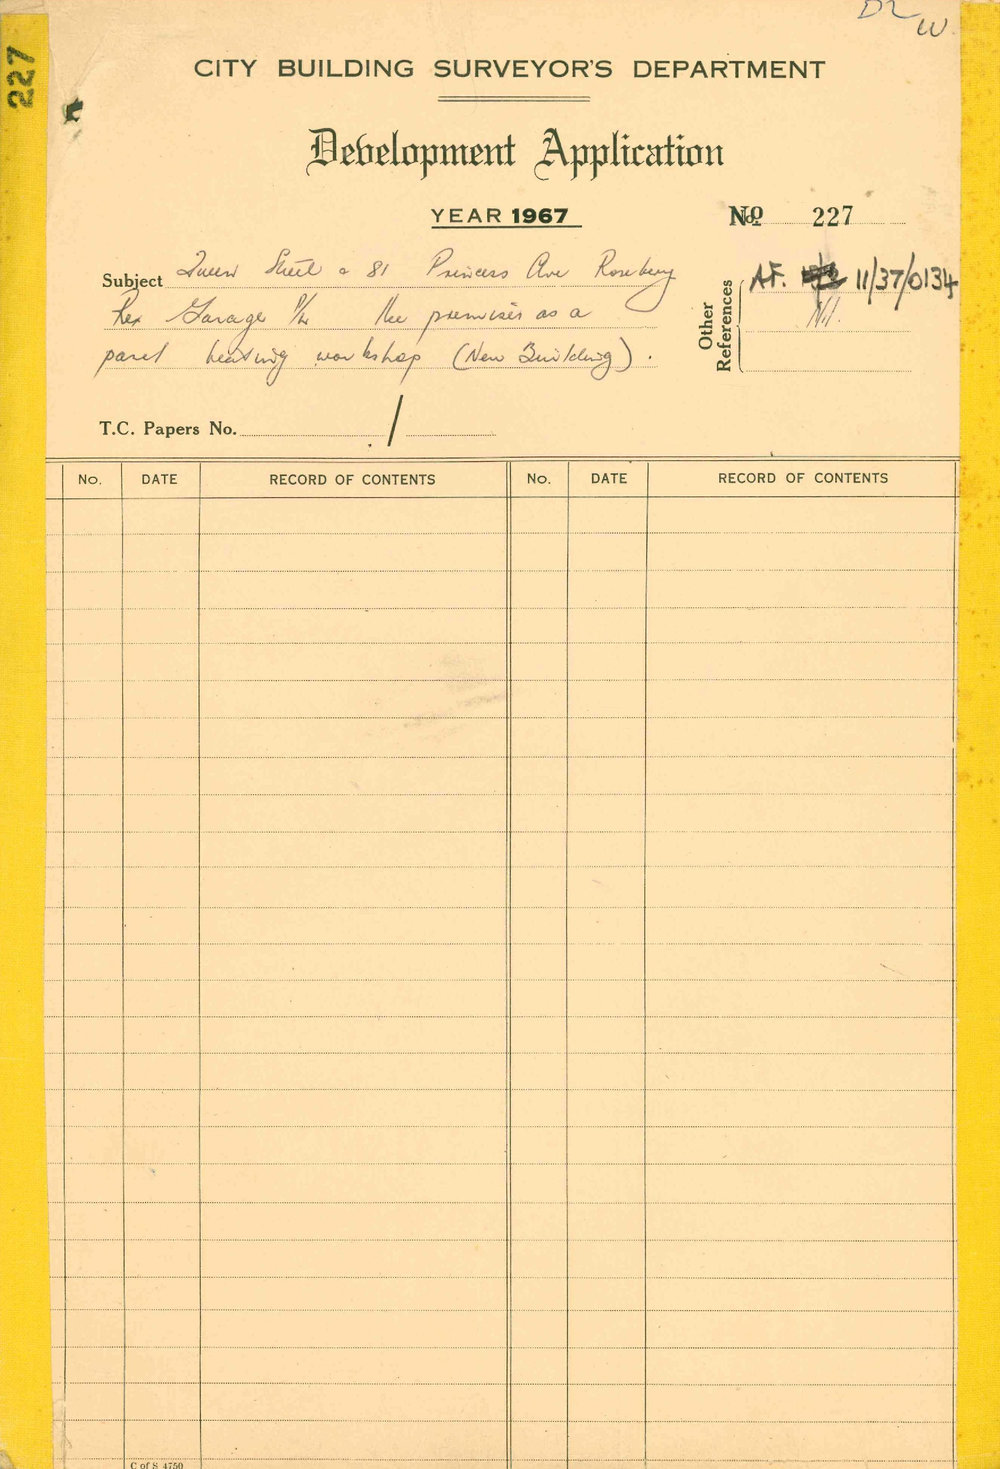 D2 W.
227
CITY BUILDING SURVEYOR'S DEPARTMENT
Development Application
YEAR 1967
No 227
Subject Queen Street & 81 Princess Ave Rosebery
Rex Garage the premises as a
panel beating workshop (New Building).
Other References
A.F. 11/37/0134
Nil.
T.C. Papers No. /
No. DATE RECORD OF CONTENTS No. DATE RECORD OF CONTENTS
C of S 4750